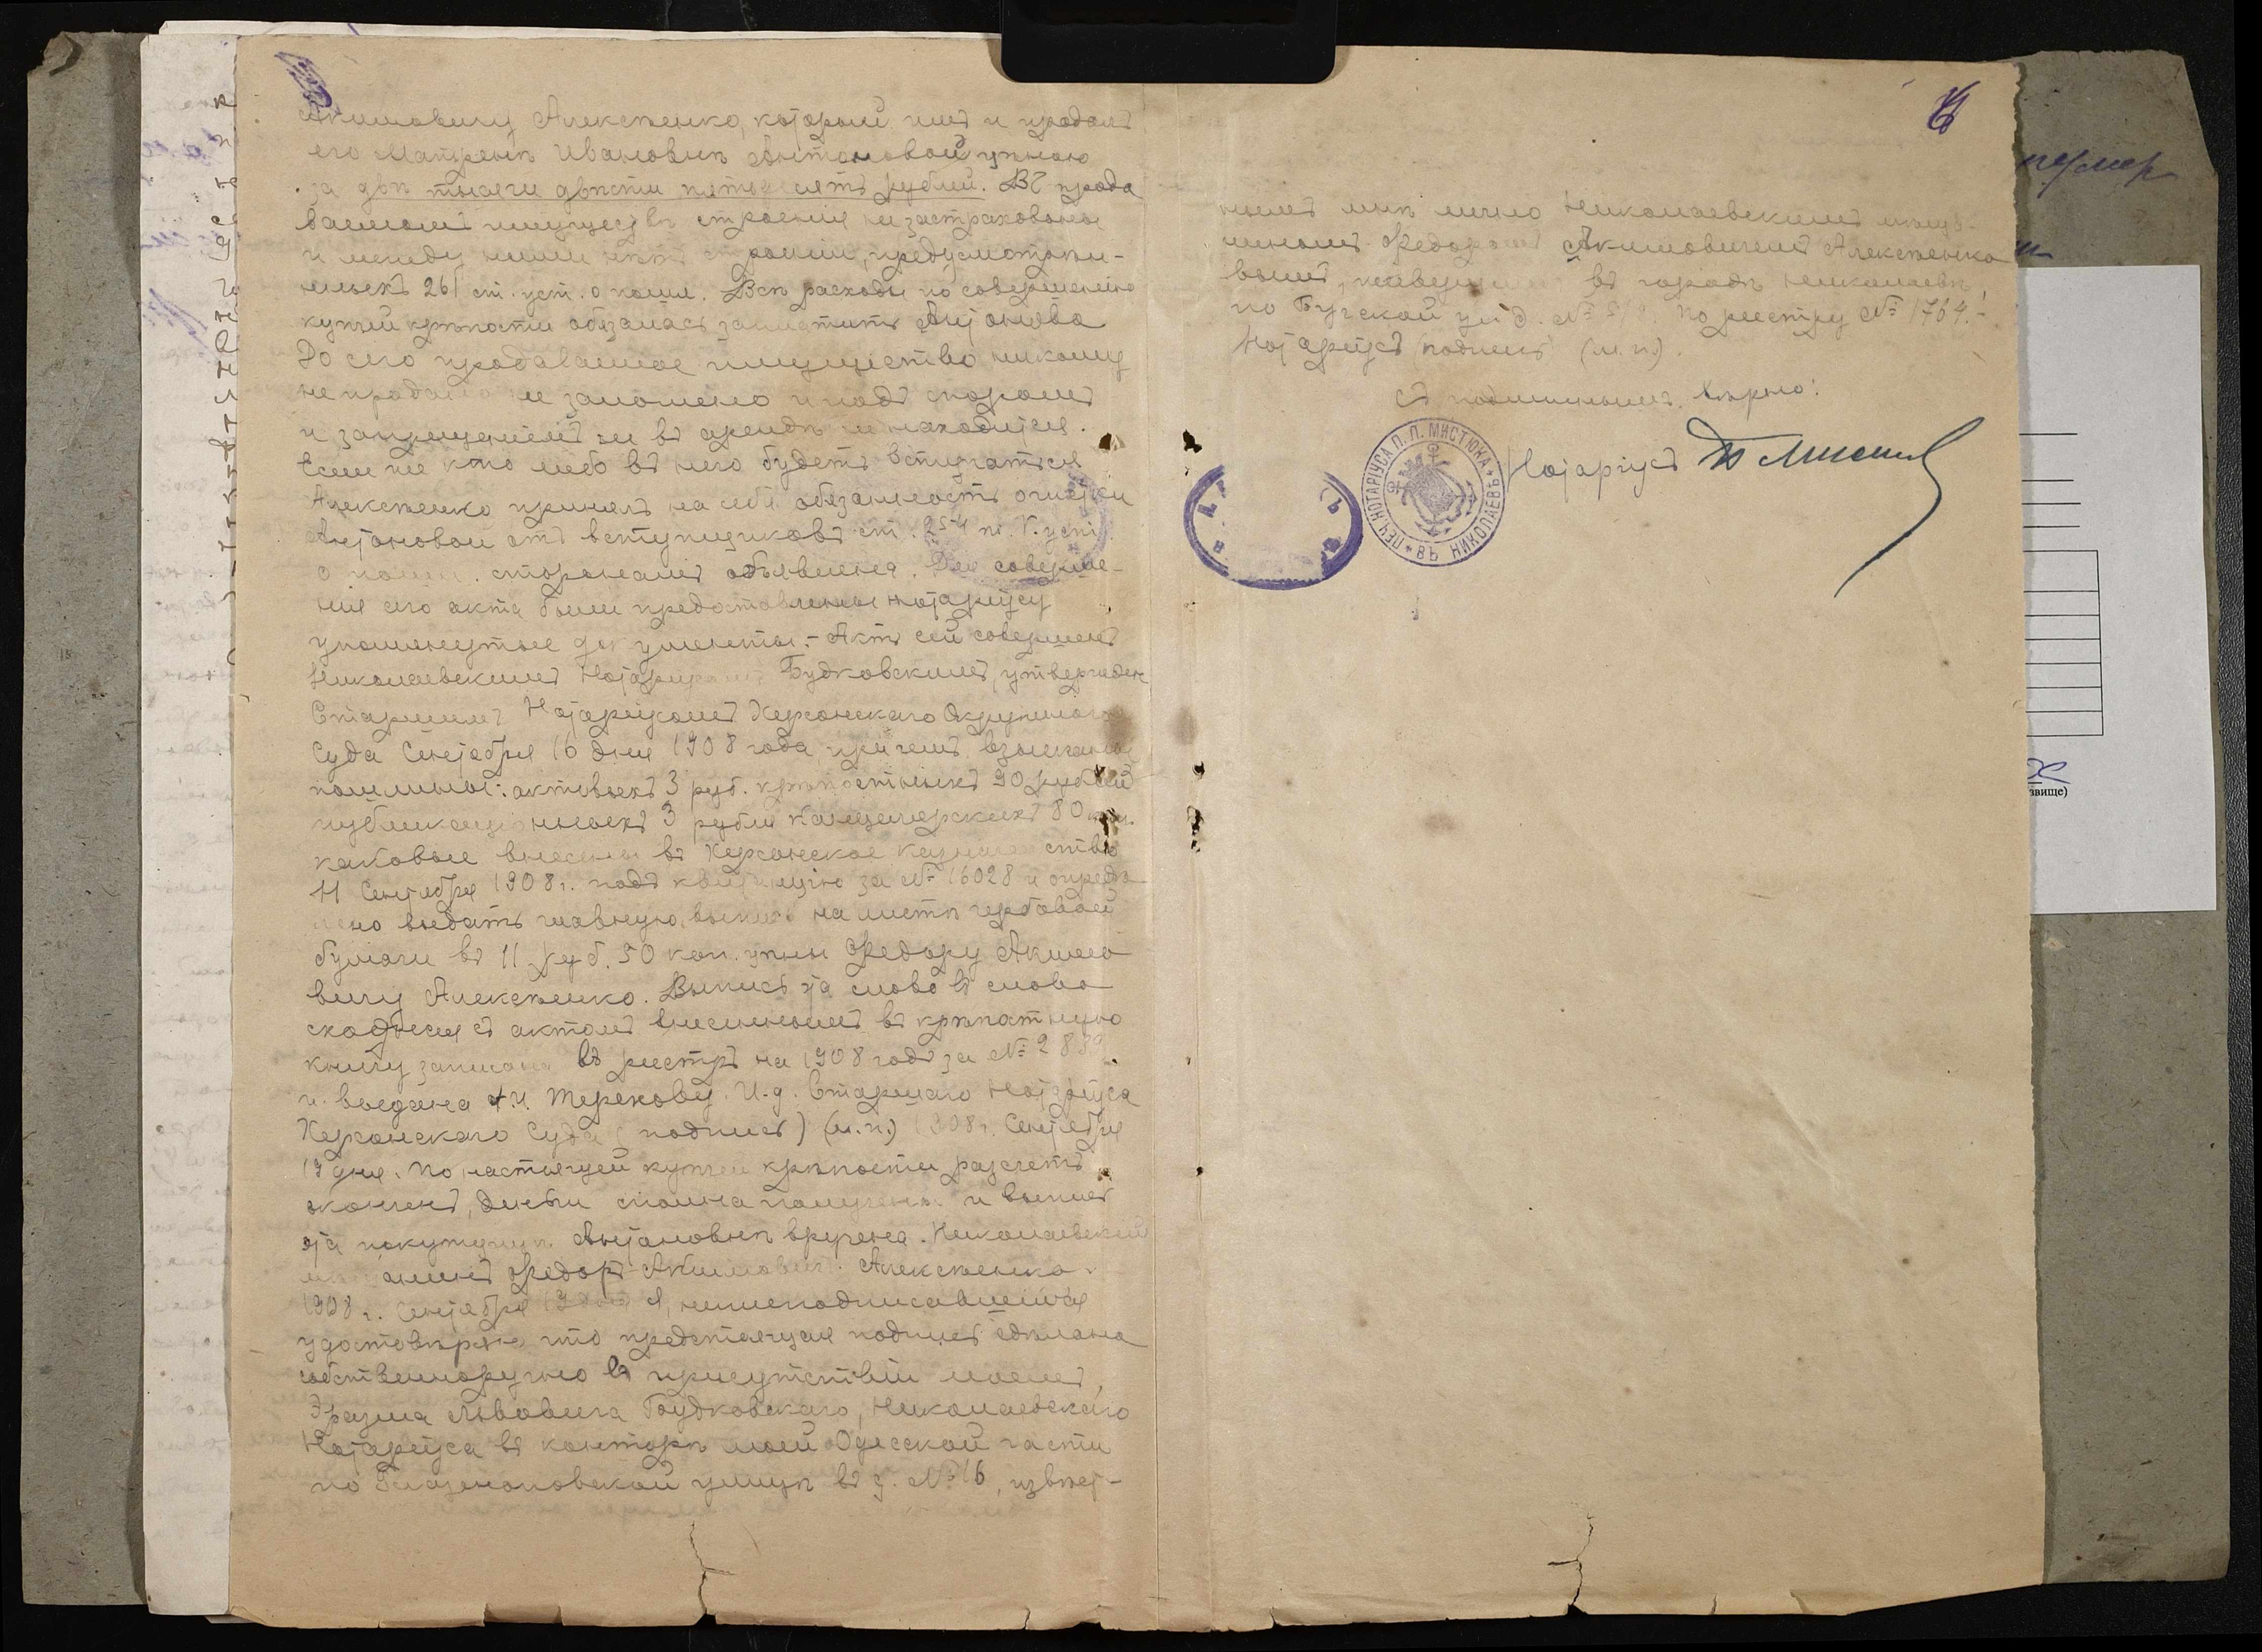 Акимовичу Алексѣенко, который имъ и продалъ
его Матренѣ Ивановнѣ Антоновой цѣною
за двѣ тысячи двѣсти пятьдесятъ рублей. Въ прода
ваемомъ имуществѣ строенія не застрахованы
и между ними нѣтъ строеній, предусмотрѣн-
ныхъ 261 ст. уст. о пошл. Всѣ расходы по совершенію
купчей крѣпости обязалась заплатить Антонова
До сего продаваемое имущество никому
не продано не заложено и подъ споромъ
и запрещеніемъ ни въ арендѣ не находится.
Если же кто либо въ него будетъ вступаться
Алексѣенко принялъ на себя обязанность очистки
Антоновой отъ вступщиковъ ст. 254 т. V. уст
о пошл. сторонамъ объявлена. Для соверше-
нія сего акта были предоставлены нотаріусу
упомянутые документы.- Актъ сей совершенъ
Николаевскимъ Нотаріусомъ Будковскимъ, утвержденъ
Старшимъ Нотаріусомъ Херсонскаго Окружного
Суда Сентября 16 дня 1908 года, при чемъ взысканы
пошлины: актовыхъ 3 руб. крѣпостныхъ 90 рублей
публикаціонныхъ 3 рубля Канцелярскихъ 80 коп.
каковые внесены въ Херсонское казначейство
11 Сентября 1908 г. подъ квитанцію за № 16028 и опредѣ
лено выдать главную выпись на листѣ гербовой
бумаги въ 11 руб. 50 коп. цѣны Федору Акимо
вичу Алексѣенко. Выпись эта слово въ слово
сходная съ актомъ внесеннымъ въ крѣпостную
книгу записана въ реестръ на 1908 годъ за № 2
и выдана Терехову. И.д. Старшаго Нотаріуса
Херсонскаго Суда (подпись) (м.п.) 1908 г. Сентября
19 дня. По настоящей купчей крѣпости разсчетъ
оконченъ, деньги сполна получены и выпись
эта покупщицѣ Антоновнѣ вручена. Николаевскій
мѣщанинъ Федоръ Акимовичъ Алексѣенко.
1908 г. Сентября 19 дня я, нижеподписавшійся
удостовѣряю, что предстоящая подпись сдѣлана
собственноручно въ присутствіи моемъ,
Эразма Львовича Будковскаго, Николаевскаго
Нотаріуса въ конторѣ моей Одесской части
по Глазенаповской улицѣ въ д. № 16, извѣст-
нымъ мнѣ лично Николаевскимъ мѣща-
ниномъ Федоромъ Акимовичемъ Алексѣенко
вымъ, живущимъ въ городѣ Николаевѣ,
по Бугской ул. д. № По реестру № 1764.-
Нотаріусъ (подпись) (м.п.).
Съ подлиннымъ вѣрно:
Нотаріусъ
ПЕЧ. НОТАРІУСА П. П. МИСТЮКА ВЪ НИКОЛАЕВѢ